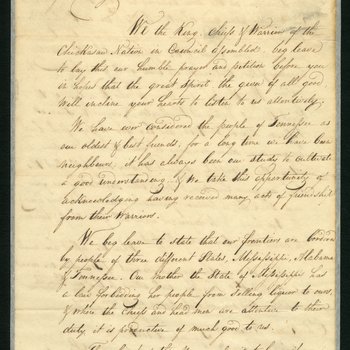 We the King, Chiefs & Warriors of the
Chickasaw Nation in Council assembled, beg leave
to lay this our humble prayer and petition before you
in hopes that the great spirit the giver of all good,
will incline your hearts to listen to us attentively.
We have ever considered the people of Tennessee as
our oldest & best friends, for a long time we have been
neighbours, it has always been our study to cultivate
a good understanding, & We take this opportunity of
acknowledging having received many acts of friendship
from their Warriors.
We beg leave to state that our frontiers are bordered
by people of three different States, Mississippi, Alabama
& Tennessee. Our brother the State of Mississippi has
a law forbidding her people from selling liquor to ours,
& where the Chiefs and head men are attentive to their
duty, it is productive of much good to us.